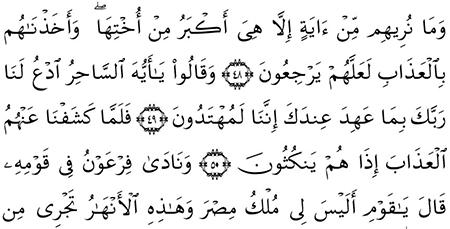 وَمَا نُرِيهِم مِّنْ ءَايَةٍ إِلَّا هِىَ أَكْبَرُ مِنْ أُخْتِهَا ۖ وَأَخَذْنَـٰهُم
بِٱلْعَذَابِ لَعَلَّهُمْ يَرْجِعُونَ ﴿٤٨﴾ وَقَالُوا۟ يَـٰٓأَيُّهَ ٱلسَّاحِرُ ٱدْعُ لَنَا
رَبَّكَ بِمَا عَهِدَ عِندَكَ إِنَّنَا لَمُهْتَدُونَ ﴿٤٩﴾ فَلَمَّا كَشَفْنَا عَنْهُمُ
ٱلْعَذَابَ إِذَا هُمْ يَنكُثُونَ ﴿٥٠﴾ وَنَادَىٰ فِرْعَوْنُ فِى قَوْمِهِۦ
قَالَ يَـٰقَوْمِ أَلَيْسَ لِى مُلْكُ مِصْرَ وَهَـٰذِهِ ٱلْأَنْهَـٰرُ تَجْرِى مِن